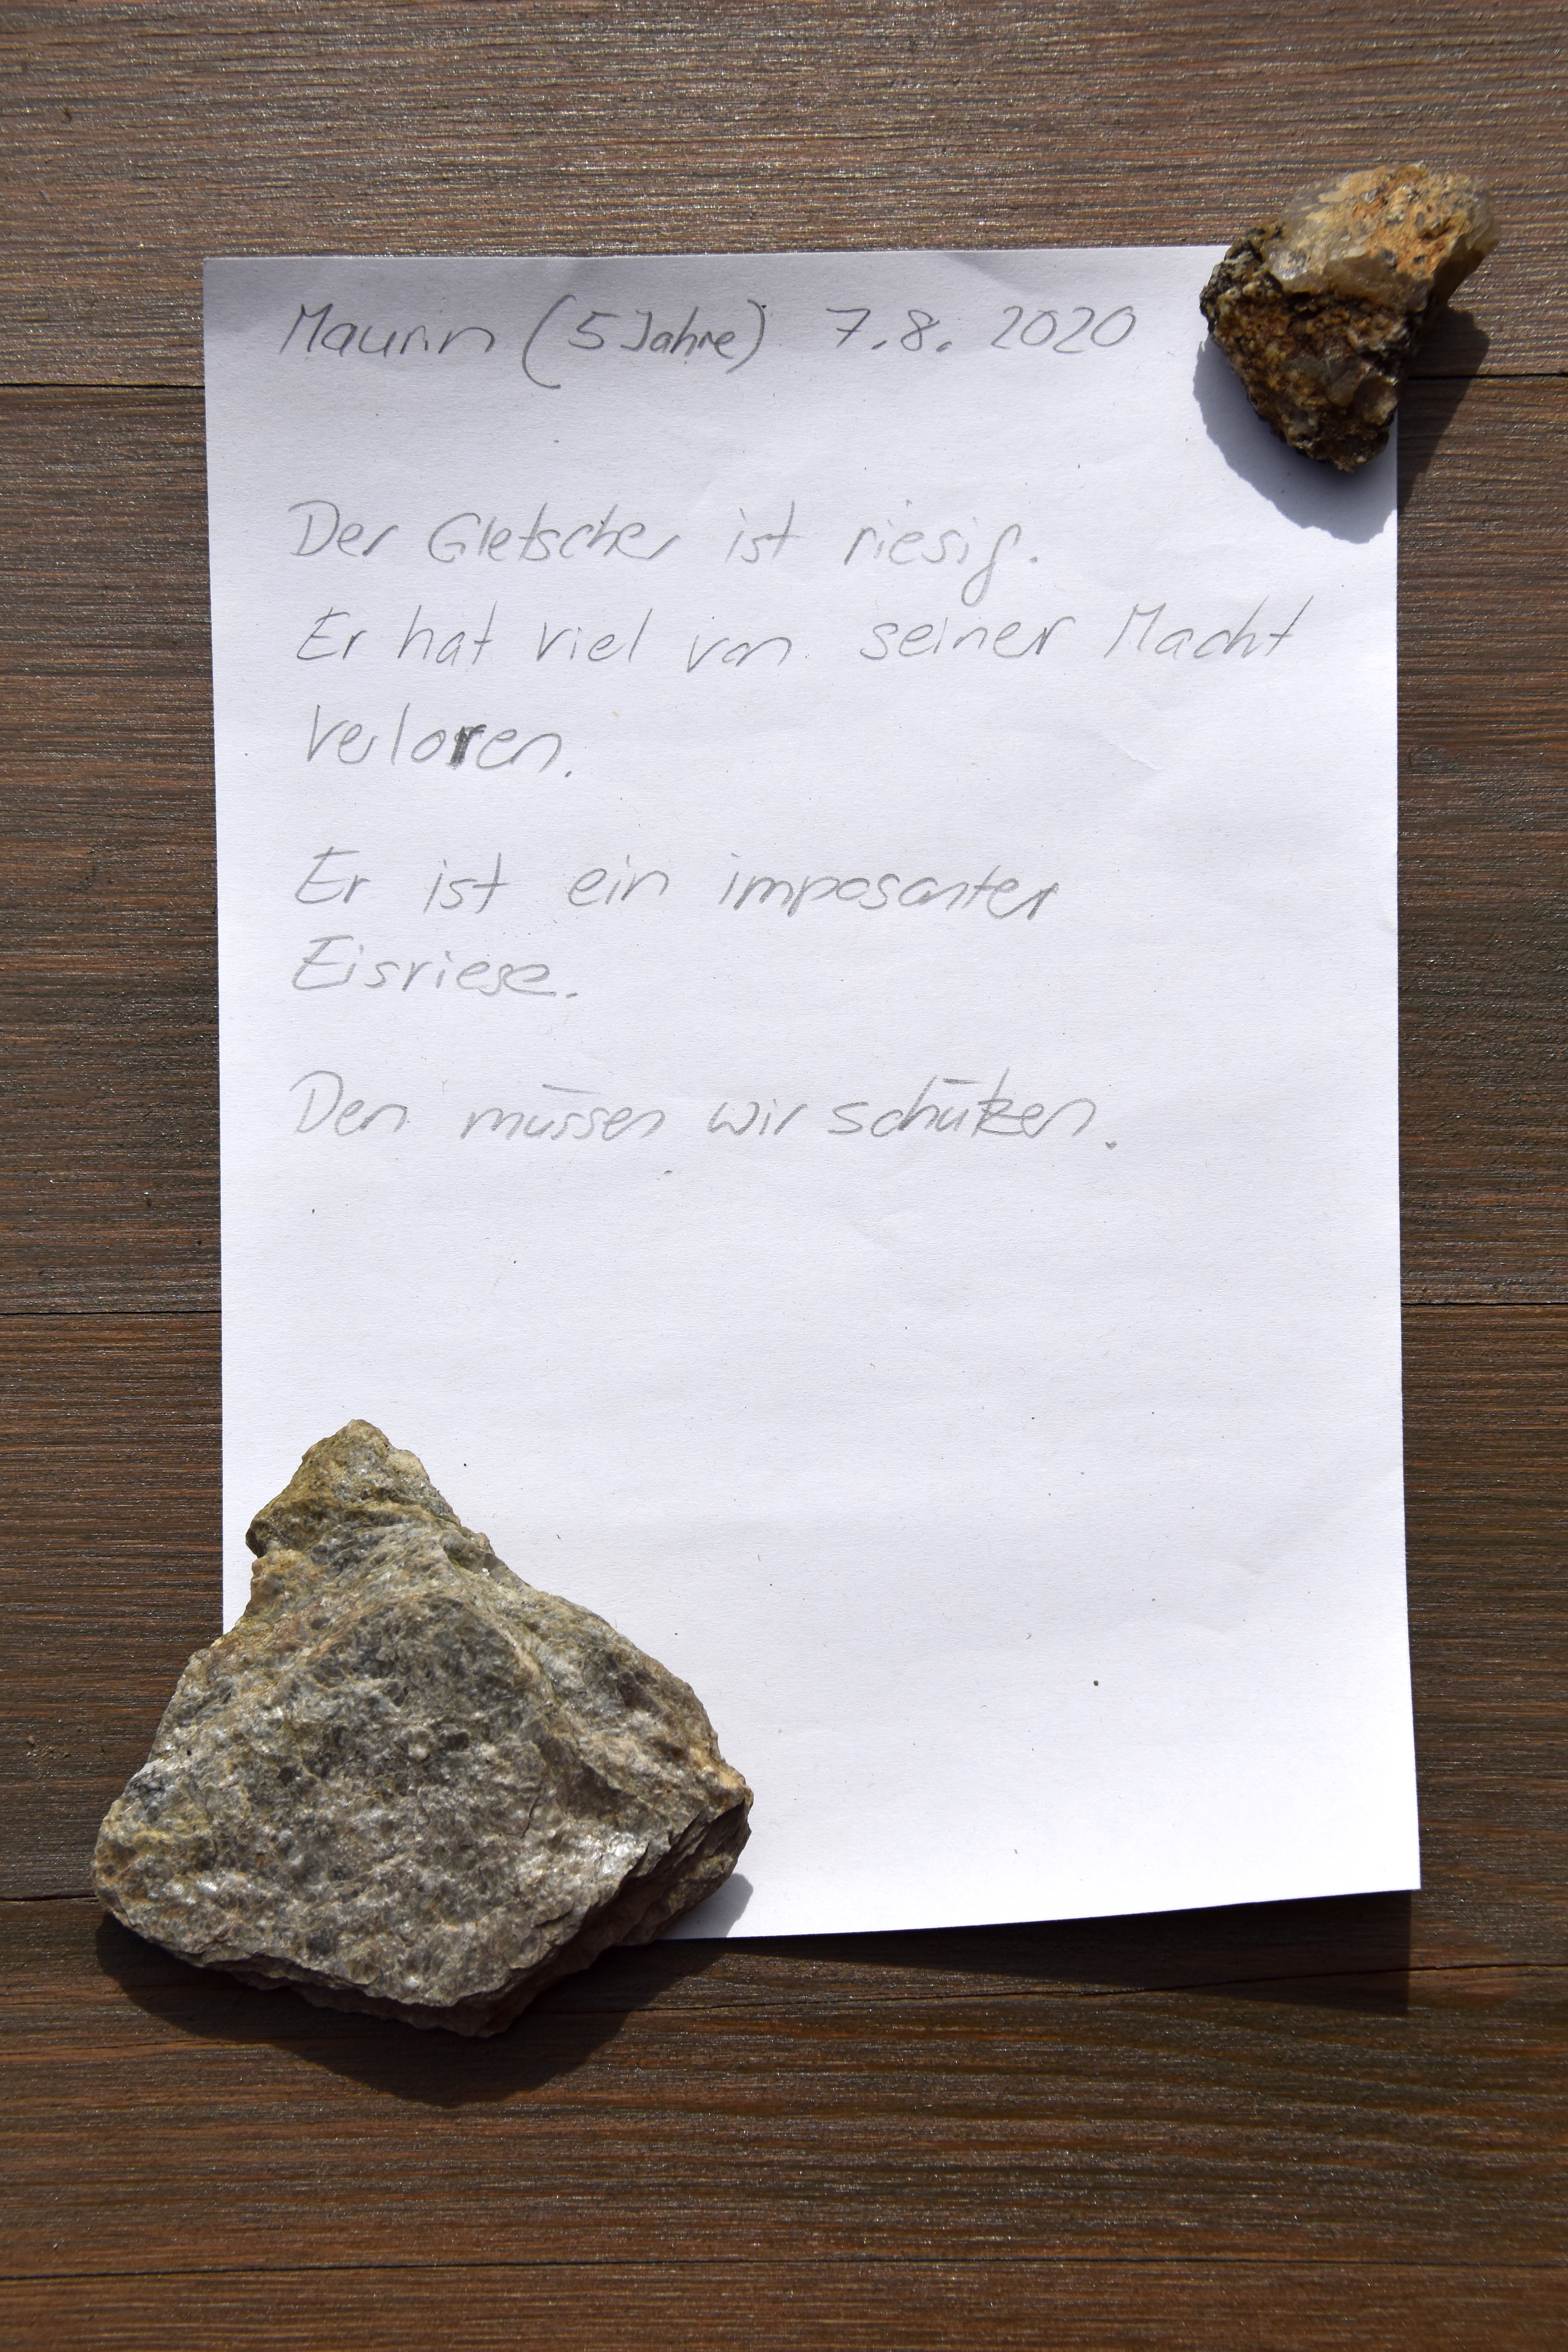 Maurin (5 Jahre) 7.8. 2020
Der Gletscher ist riesig.
Er hat viel von seiner Macht
verloren.
Er ist ein imposanter
Eisriese.
Den müssen wir schützen.